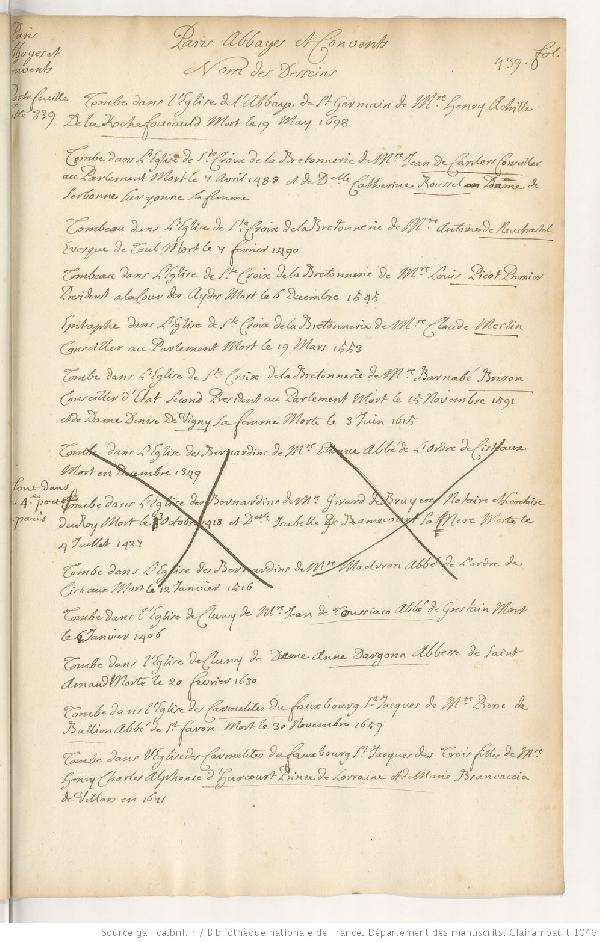 Paris Abbayes et Convents
Nom des Desseins
439. fol.
Paris
Abbayes et
Convents
Portefeuille
Tombe dans l'Eglise de l'Abbaye de St Germain de Mre Henry Achille
De la Rochefoucauld Mort le 19 May 1698
Tombe dans L'Eglise de Ste Croix de la Bretonnerie de Mre Jean de Conseiller
au Parlement Mort le 7 Avril 1483 et de Dlle Catherine Roussel Dame de
Sorbonne sur yonne sa femme
Tombeau dans L'Eglise de Ste Croix de la Bretonnerie de Mre Antoine de Neuchastel
Evesque de Toul Mort le 7 fevrier 1490
Tombeau dans L'Eglise de Ste Croix de la Bretonnerie de Mre Louis Picot Premier
President a la Cour des Aydes Mort le 6 Decembre 1545
Epitaphe dans L'Eglise de Ste Croix de la Bretonnerie de Mre Claude Merlin
Conseiller au Parlement Mort le 19 Mars 1553
Tombe dans L'Eglise de Ste Croix de la Bretonnerie de Mre Barnabé Brisson
Conseiller d'Etat Second President au Parlement Mort le 15 Novembre 1591
et de Dame Denise De Vigny sa femme Morte le 3 Juin 1615
Tombe dans L'Eglise des Bernardins de Mre Abbé de L'ordre de Cisteaux
Mort en Decembre 1349
Tombe dans L'Eglise des Bernardins de Mre Girard de Bruyeres Notaire
du Roy Mort le Octobre 1418 et Dlle Isabelle De sa Mere Morte le
4 Juillet 1427
Tombe dans L'Eglise des Bernardins de Mre Abbé de L'ordre de
Citeaux Mort le 12 Janvier 1516
Tombe dans l'Eglise de Cluny de Mre Jean de Toussiaco Abbé de Grestain Mort
le 6 Janvier 1406
Tombe dans l'Eglise de Cluny de Dame Anne Dargona Abbesse de Saint
Amand Morte le 20 fevrier 1630
Tombe dans l'Eglise des Carmelites du fauxbourg St Jacques de Mre Pierre de
Bullion Abbé de St faron Mort le 30 Novembre 1659
Tombe dans l'Eglise des Carmelites du fauxbourg St Jacques des Trois filles de Mre
Henry Charles Alphonse d'Harcourt Prince de Lorraine et de Marie Brancaccia
de Villars en 1691
Source gallica.bnf.fr / Bibliothèque nationale de France. Département des manuscrits. Clairambault 1046